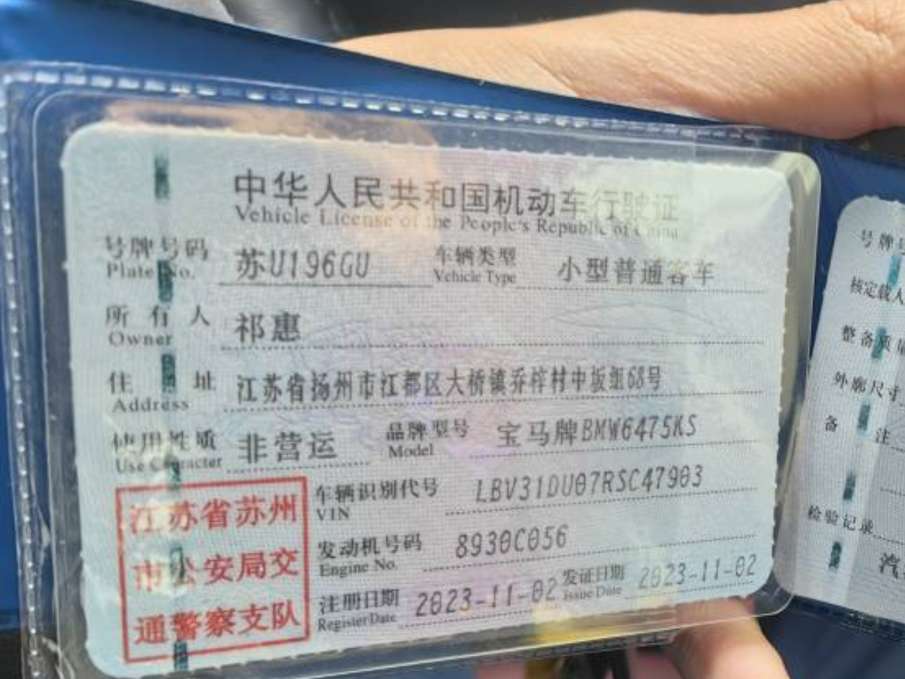 中华人民共和国机动车行驶证
Vehicle License of the People's Republic of China
号牌号码 苏U196GU 车辆类型 小型普通客车
Plate No. Vehicle Type
所有人 祁惠
Owner
住址 江苏省扬州市江都区大桥镇乔梓村中坂组68号
Address
使用性质 非营运 品牌型号 宝马牌BMW6475KS
Use Character Model
江苏省苏州
市公安局交
通警察支队
车辆识别代号 LBV31DU07RSC47903
VIN
发动机号码 8930C056
Engine No.
注册日期 2023-11-02 发证日期 2023-11-02
Register Date Issue Date
号牌号
核定载人
整备质量
外廓尺寸
备注
检验记录
汽